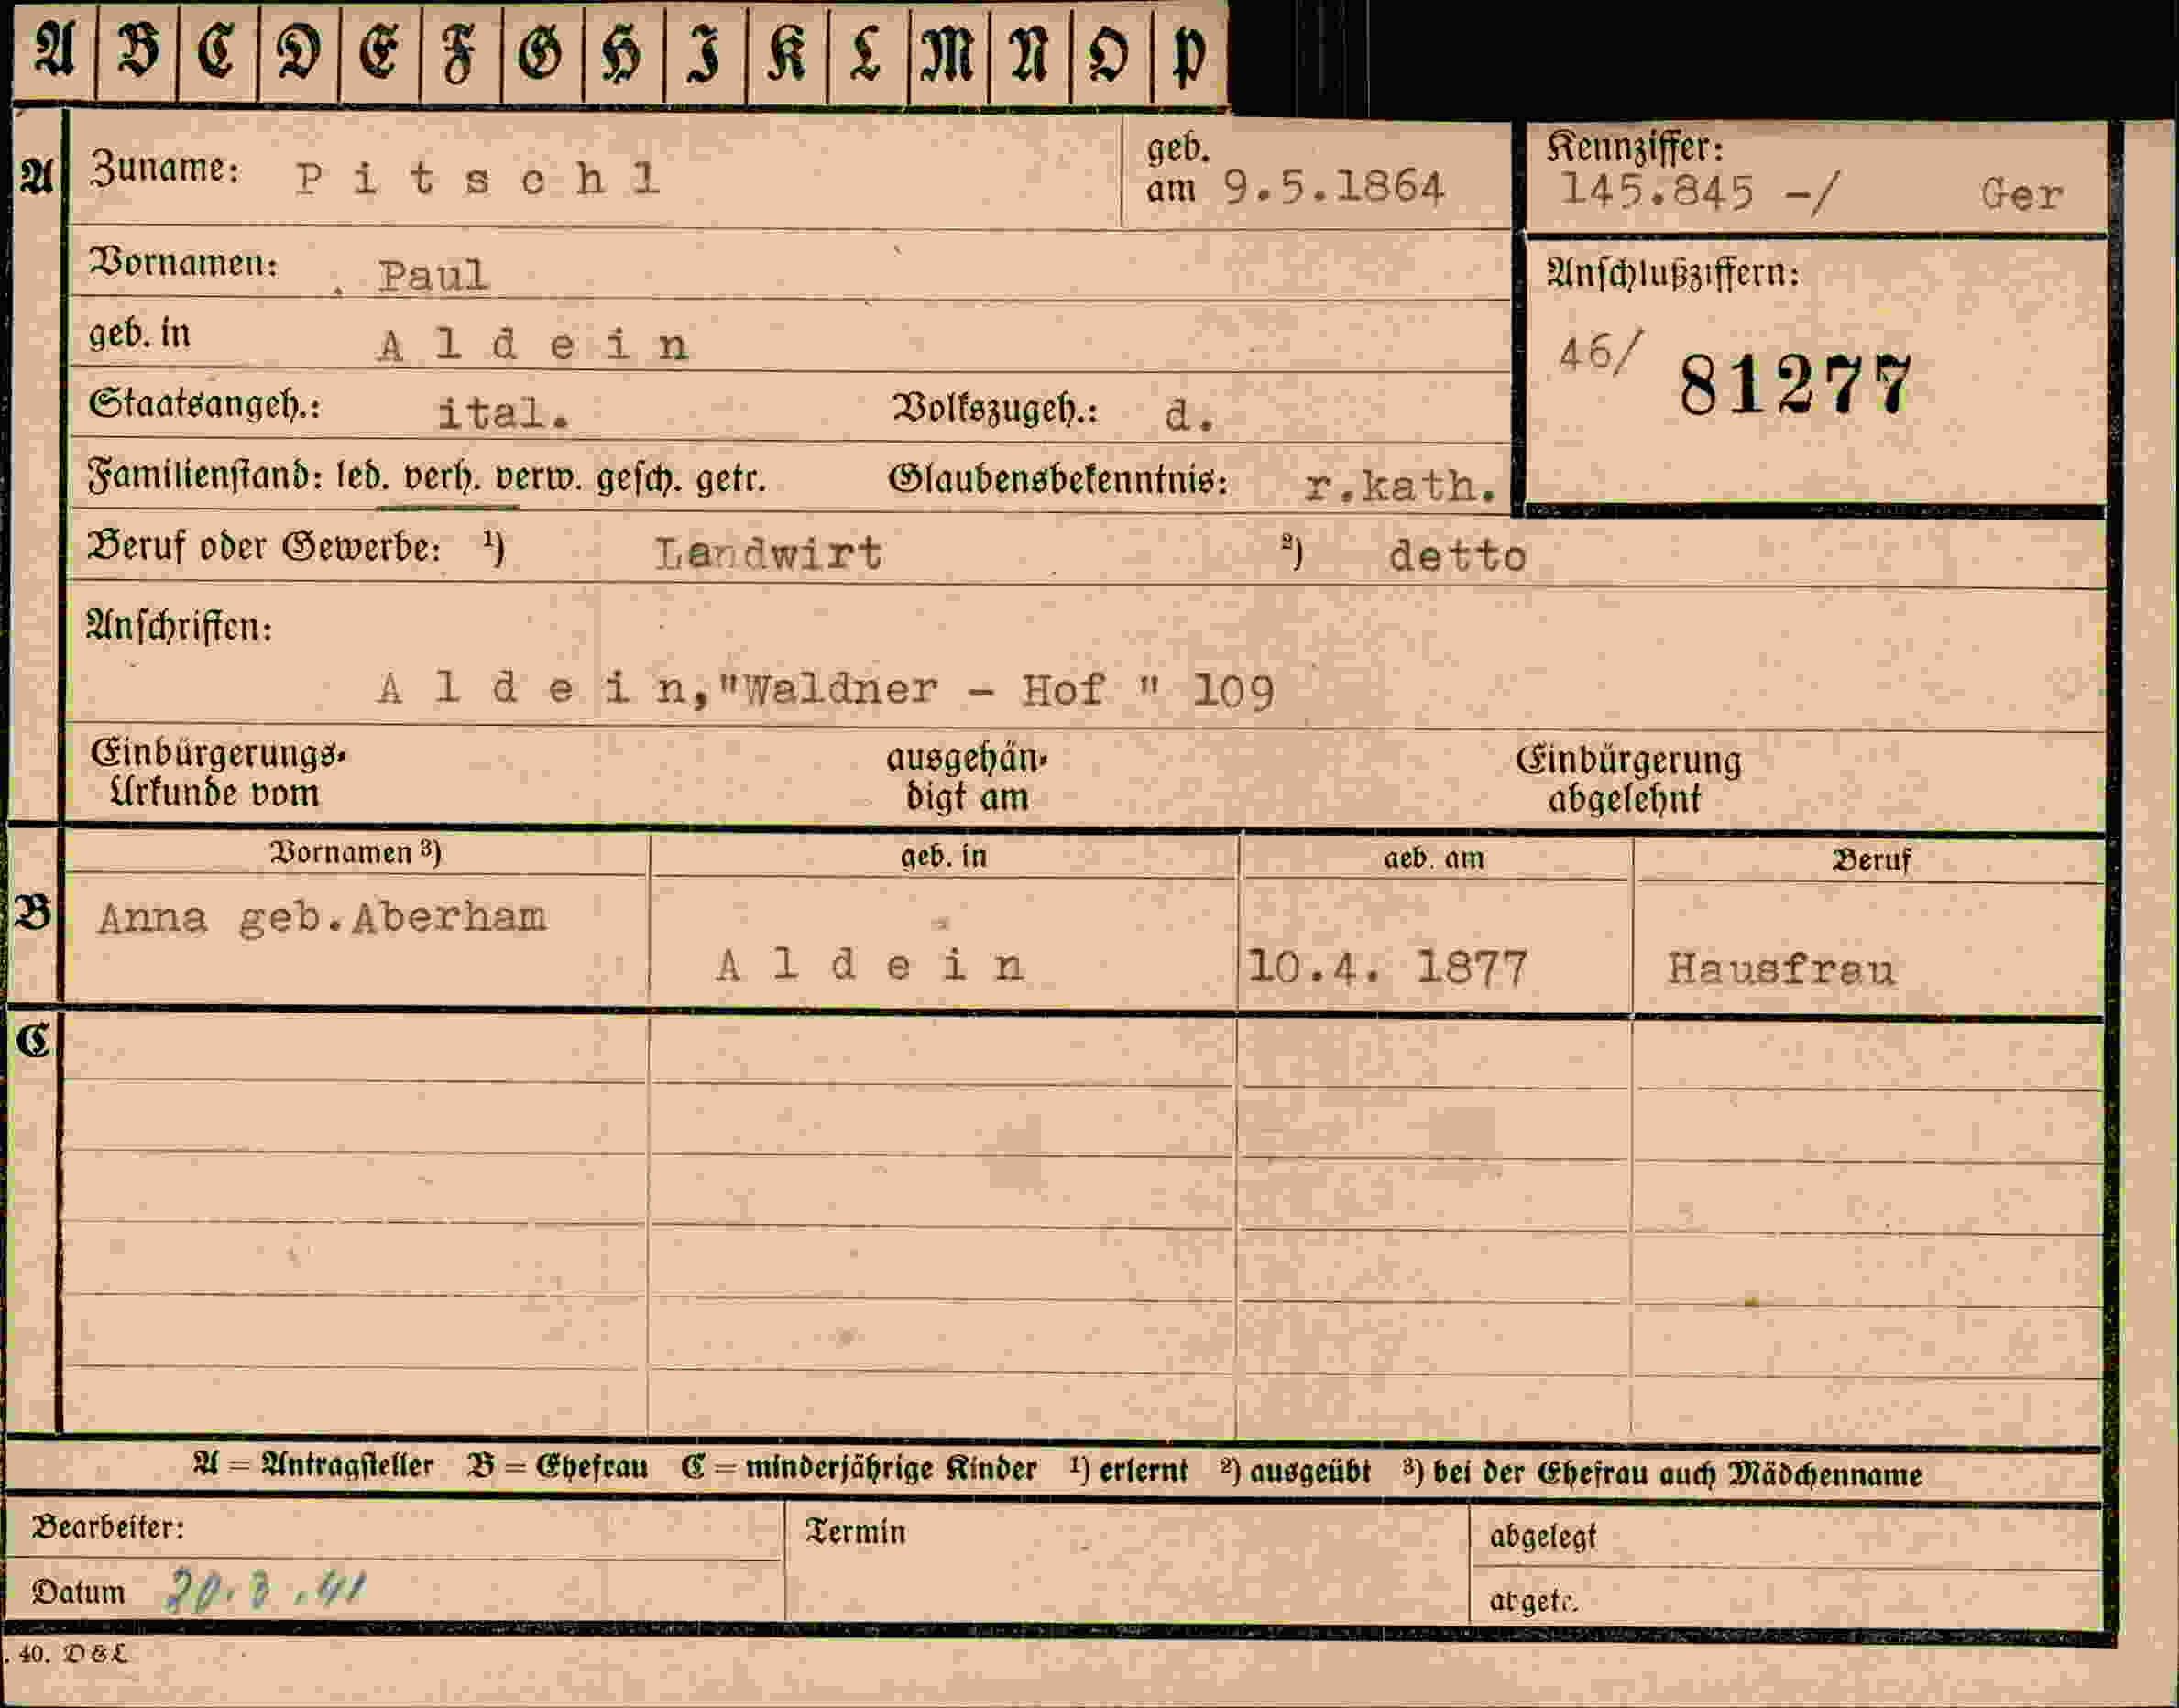 A B C D E F G H I K L M N O P
A Zuname: Pitschl geb. am 9.5.1864 Kennziffer: 145.845 -/ Ger
Vornamen: Paul Anschlußziffern:
geb. in Aldein 46/ 81277
Staatsangeh.: ital. Volkszugeh.: d.
Familienstand: led. verh. verw. gesch. getr. Glaubensbekenntnis: r.kath.
Beruf oder Gewerbe: ¹) Landwirt ²) detto
Anschriften:
Aldein,"Waldner - Hof " 109
Einbürgerungs- ausgehän- Einbürgerung
Urkunde vom digt am abgelehnt
Vornamen ³) geb. in geb. am Beruf
B Anna geb.Aberham
Aldein 10.4. 1877 Hausfrau
C
A = Antragsteller B = Ehefrau C = minderjährige Kinder ¹) erlernt ²) ausgeübt ³) bei der Ehefrau auch Mädchenname
Bearbeiter: Termin abgelegt
Datum 20.3.41 abgetr.
. 40. D & L